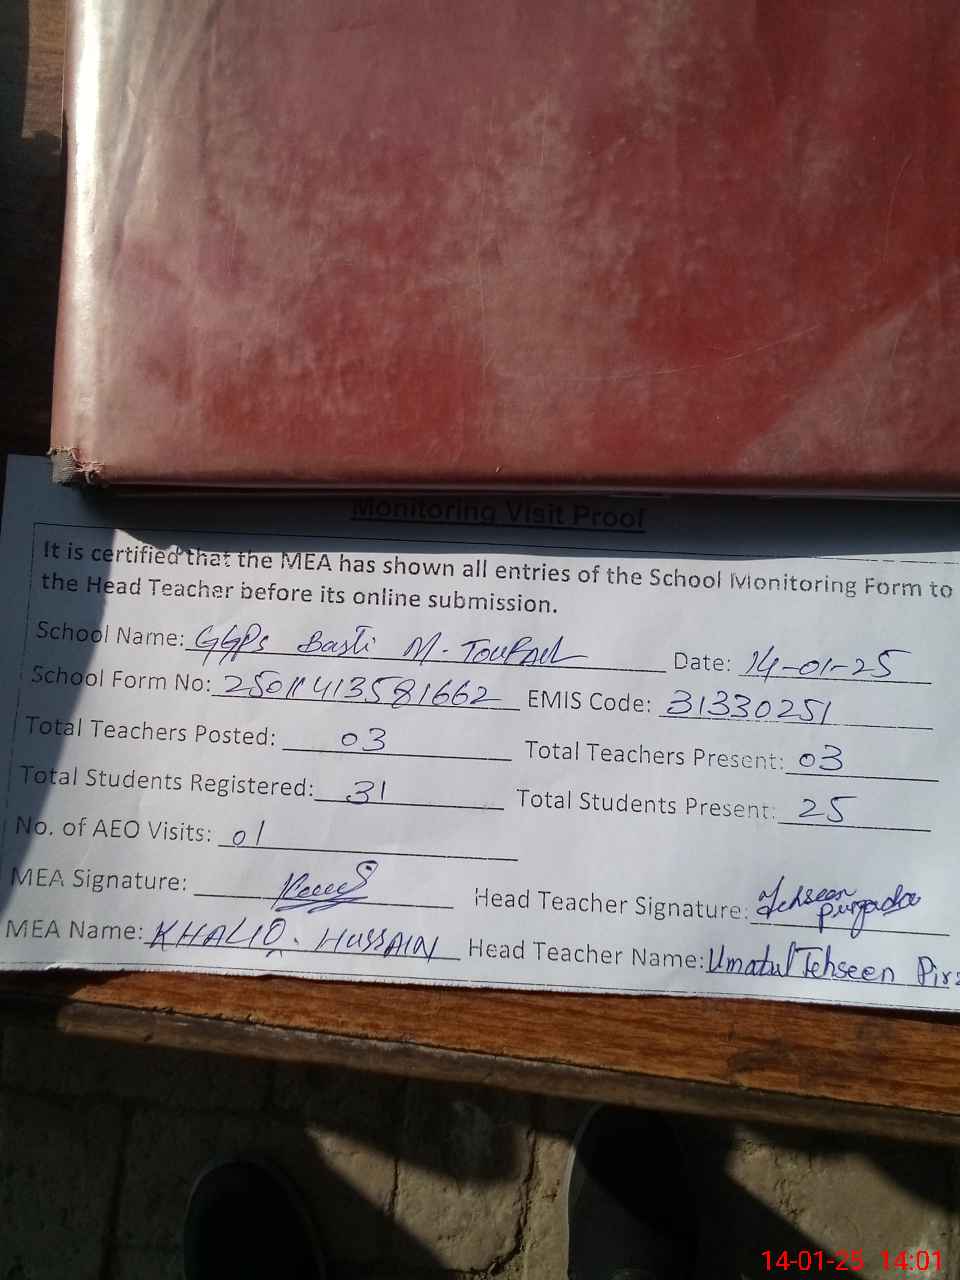 Monitoring Visit Proof
It is certified that the MEA has shown all entries of the School Monitoring Form to
the Head Teacher before its online submission.
School Name: GGPS Basti M. Toufail Date: 14-01-25
School Form No: 25011413581662 EMIS Code: 31330251
Total Teachers Posted: 03 Total Teachers Present: 03
Total Students Registered: 31 Total Students Present: 25
No. of AEO Visits: 01
MEA Signature: Head Teacher Signature: Tehseen
MEA Name: KHALIQ. HUSSAIN Head Teacher Name: Umatul Tehseen
14-01-25 14:01